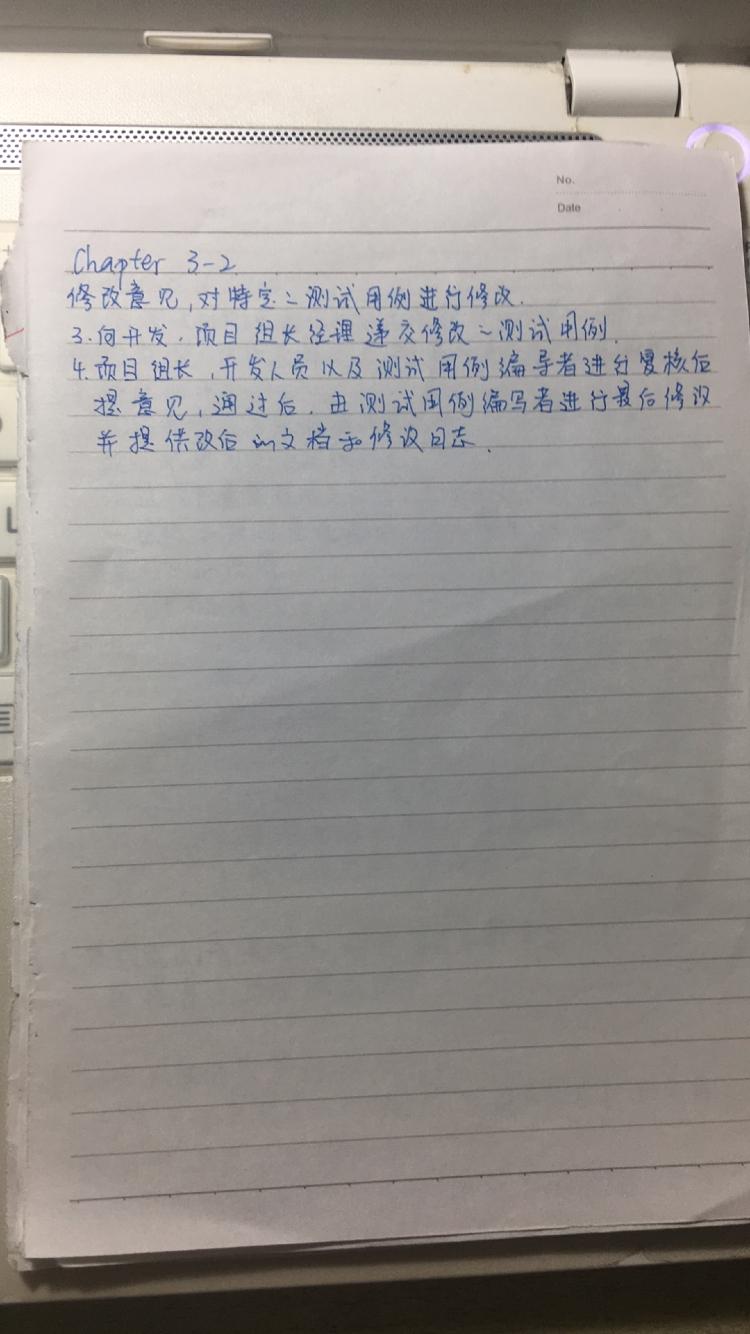 No.
Date
Chapter 3-2
修改意见,对特定的测试用例进行修改.
3.向开发.项目组长经理递交修改的测试用例.
4.项目组长,开发人员以及测试用例编导者进行复核后
提意见,通过后.由测试用例编写者进行最后修改
并提供改后的文档和修改日志.
L